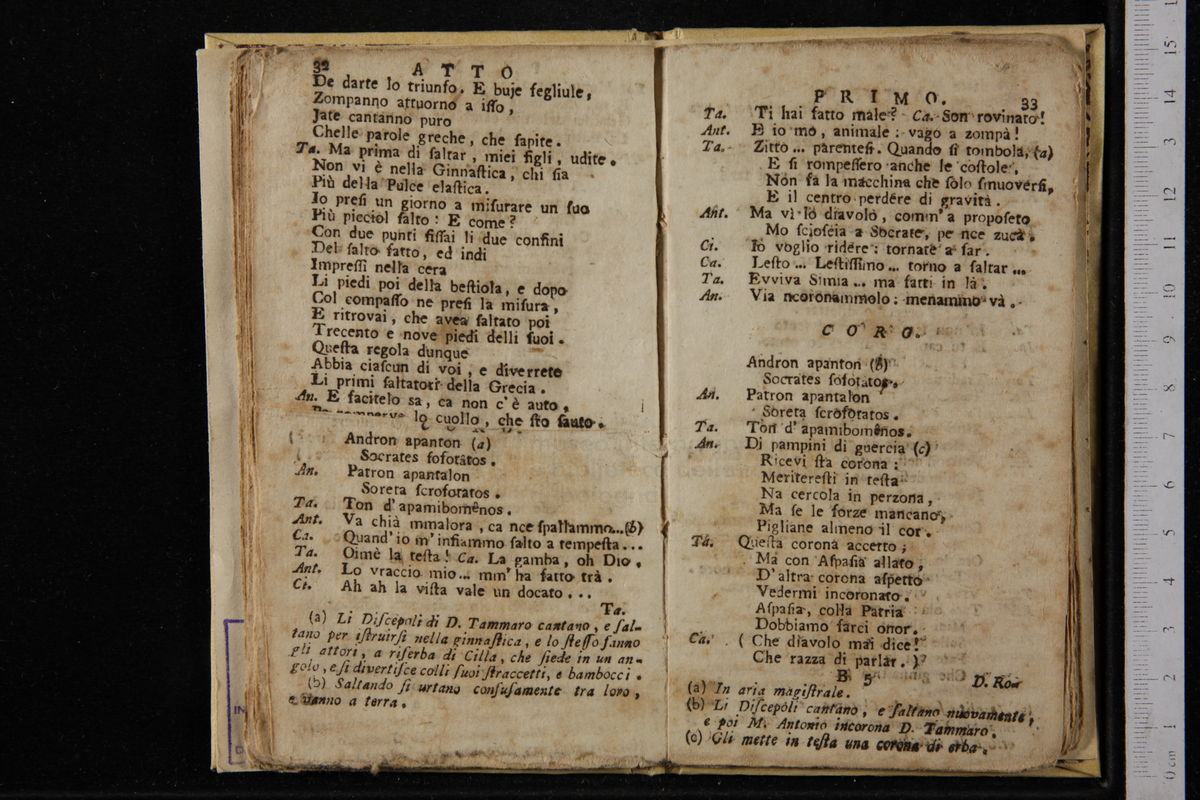 32 ATTO
De darte lo triunfo. E buje fegliule,
Zompanno attuorno a iſſo,
Jate cantanno puro
Chelle parole greche, che ſapite.
Ta. Ma prima di ſaltar, miei figli, udite.
Non vi è nella Ginnaſtica, chi ſia
Più della Pulce elaſtica.
Io preſi un giorno a miſurare un ſuo
Più picciol ſalto: E come?
Con due punti fiſſai li due confini
Del ſalto fatto, ed indi
Impreſſi nella cera
Li piedi poi della beſtiola, e dopo
Col compaſſo ne preſi la miſura,
E ritrovai, che avea ſaltato poi
Trecento e nove piedi delli ſuoi.
Queſta regola dunque
Abbia ciaſcun di voi, e diverrete
Li primi ſaltatori della Grecia.
An. E facitelo sa, ca non c'è auto,
lo cuollo, che ſto ſauto.
Andron apanton (a)
Socrates ſofotatos.
An. Patron apantalon
Soreta ſcroforatos.
Ta. Ton d'apamibomênos.
Ant. Va chià mmalora, ca nce ſpallammo...(b)
Ca. Quand'io m'infiammo ſalto a tempeſta...
Ta. Oimè la teſta! Ca. La gamba, oh Dio.
Ant. Lo vraccio mio... mm'ha fatto trà.
Ci. Ah ah la viſta vale un docato...
Ta.
(a) Li Diſcepoli di D. Tammaro cantano, e ſal-
tano per iſtruirſi nella ginnaſtica, e lo ſteſſo fanno
gli attori, a riſerba di Cilla, che ſiede in un an-
golo, e ſi divertiſce colli ſuoi ſtraccetti, e bambocci.
(b) Saltando ſi urtano confuſamente tra loro,
e vanno a terra.
PRIMO. 33
Ta. Ti hai fatto male? Ca. Son rovinato!
Ant. E io mo, animale: vago a zompà!
Ta. Zitto... parenteſi. Quando ſi tombola, (a)
E ſi rompeſſero anche le coſtole,
Non fa la macchina che ſolo ſmuoverſi,
E il centro perdere di gravità.
Ant. Ma vì lo diavolo, comm'a propoſeto
Mo ſcioſcia a Socrate, pe nce zucà.
Ci. Io voglio ridere: tornate a far.
Ca. Leſto... Leſtiſſimo... torno a ſaltar...
Ta. Evviva Simia... ma fatti in là.
An. Via ncoronammolo: menammo và.
CORO.
Andron apanton (b)
Socrates ſofotatos.
An. Patron apantalon
Soreta ſcrofotatos.
Ta. Ton d'apamibomênos.
An. Di pampini di guercia (c)
Ricevi ſta corona:
Meritereſti in teſta
Na cercola in perzona,
Ma ſe le forze mancano,
Pigliane almeno il cor.
Ta. Queſta corona accetto;
Ma con Aſpaſia allato,
D'altra corona aſpetto
Vedermi incoronato.
Aſpaſia, colla Patria
Dobbiamo farci onor.
Ca. (Che diavolo mai dice!
Che razza di parlar.)
B 5 D. Ro-
(a) In aria magiſtrale.
(b) Li Diſcepoli cantano, e ſaltano nuovamente,
e poi M. Antonio incorona D. Tammaro.
(c) Gli mette in teſta una corona di erba.
0 cm 1 2 3 4 5 6 7 8 9 10 11 12 13 14 15